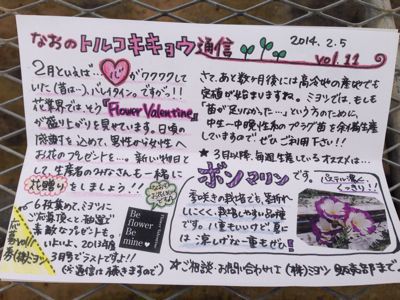 なおの トルコキキョウ通信
2014. 2. 5
vol. 11
2月といえば…心がワクワクして
いた(昔は…)バレンタイン。ですが!!
花業界では、そう"Flower Valentine"
が盛り上がりを見せています。日頃の
感謝を込めて、男性から女性へ
お花のプレゼント…。新しい物日と
して、生産者のみなさんも一緒に
花贈りをしましょう!!
6枚集めて、ミヨシに
ご応募頂くと抽選で
素敵なプレゼント。
いよいよ、2013年度
3月号でラストです!!
(※通信は続きますので)
Be
flower
Be
mine
さて、あと数ヶ月後には高冷地の産地でも
定植が始まりますね。ミヨシでは、もしも
「苗が足りなかった…」という方のために、
中生〜中晩生系のプラグ苗を余備生産
していますので ぜひご利用下さい!!
★3月以降、毎週生産しているオススメは…
ボン マリン です。
パステル濃く
くっきり!!
季咲きの栽培でも、茎折れ
しにくく、栽培しやすい品種
です。八重もいいけど、夏に
は涼しげな一重もぜひ!
★ご相談・お問い合わせは(株)ミヨシ 販売部まで。